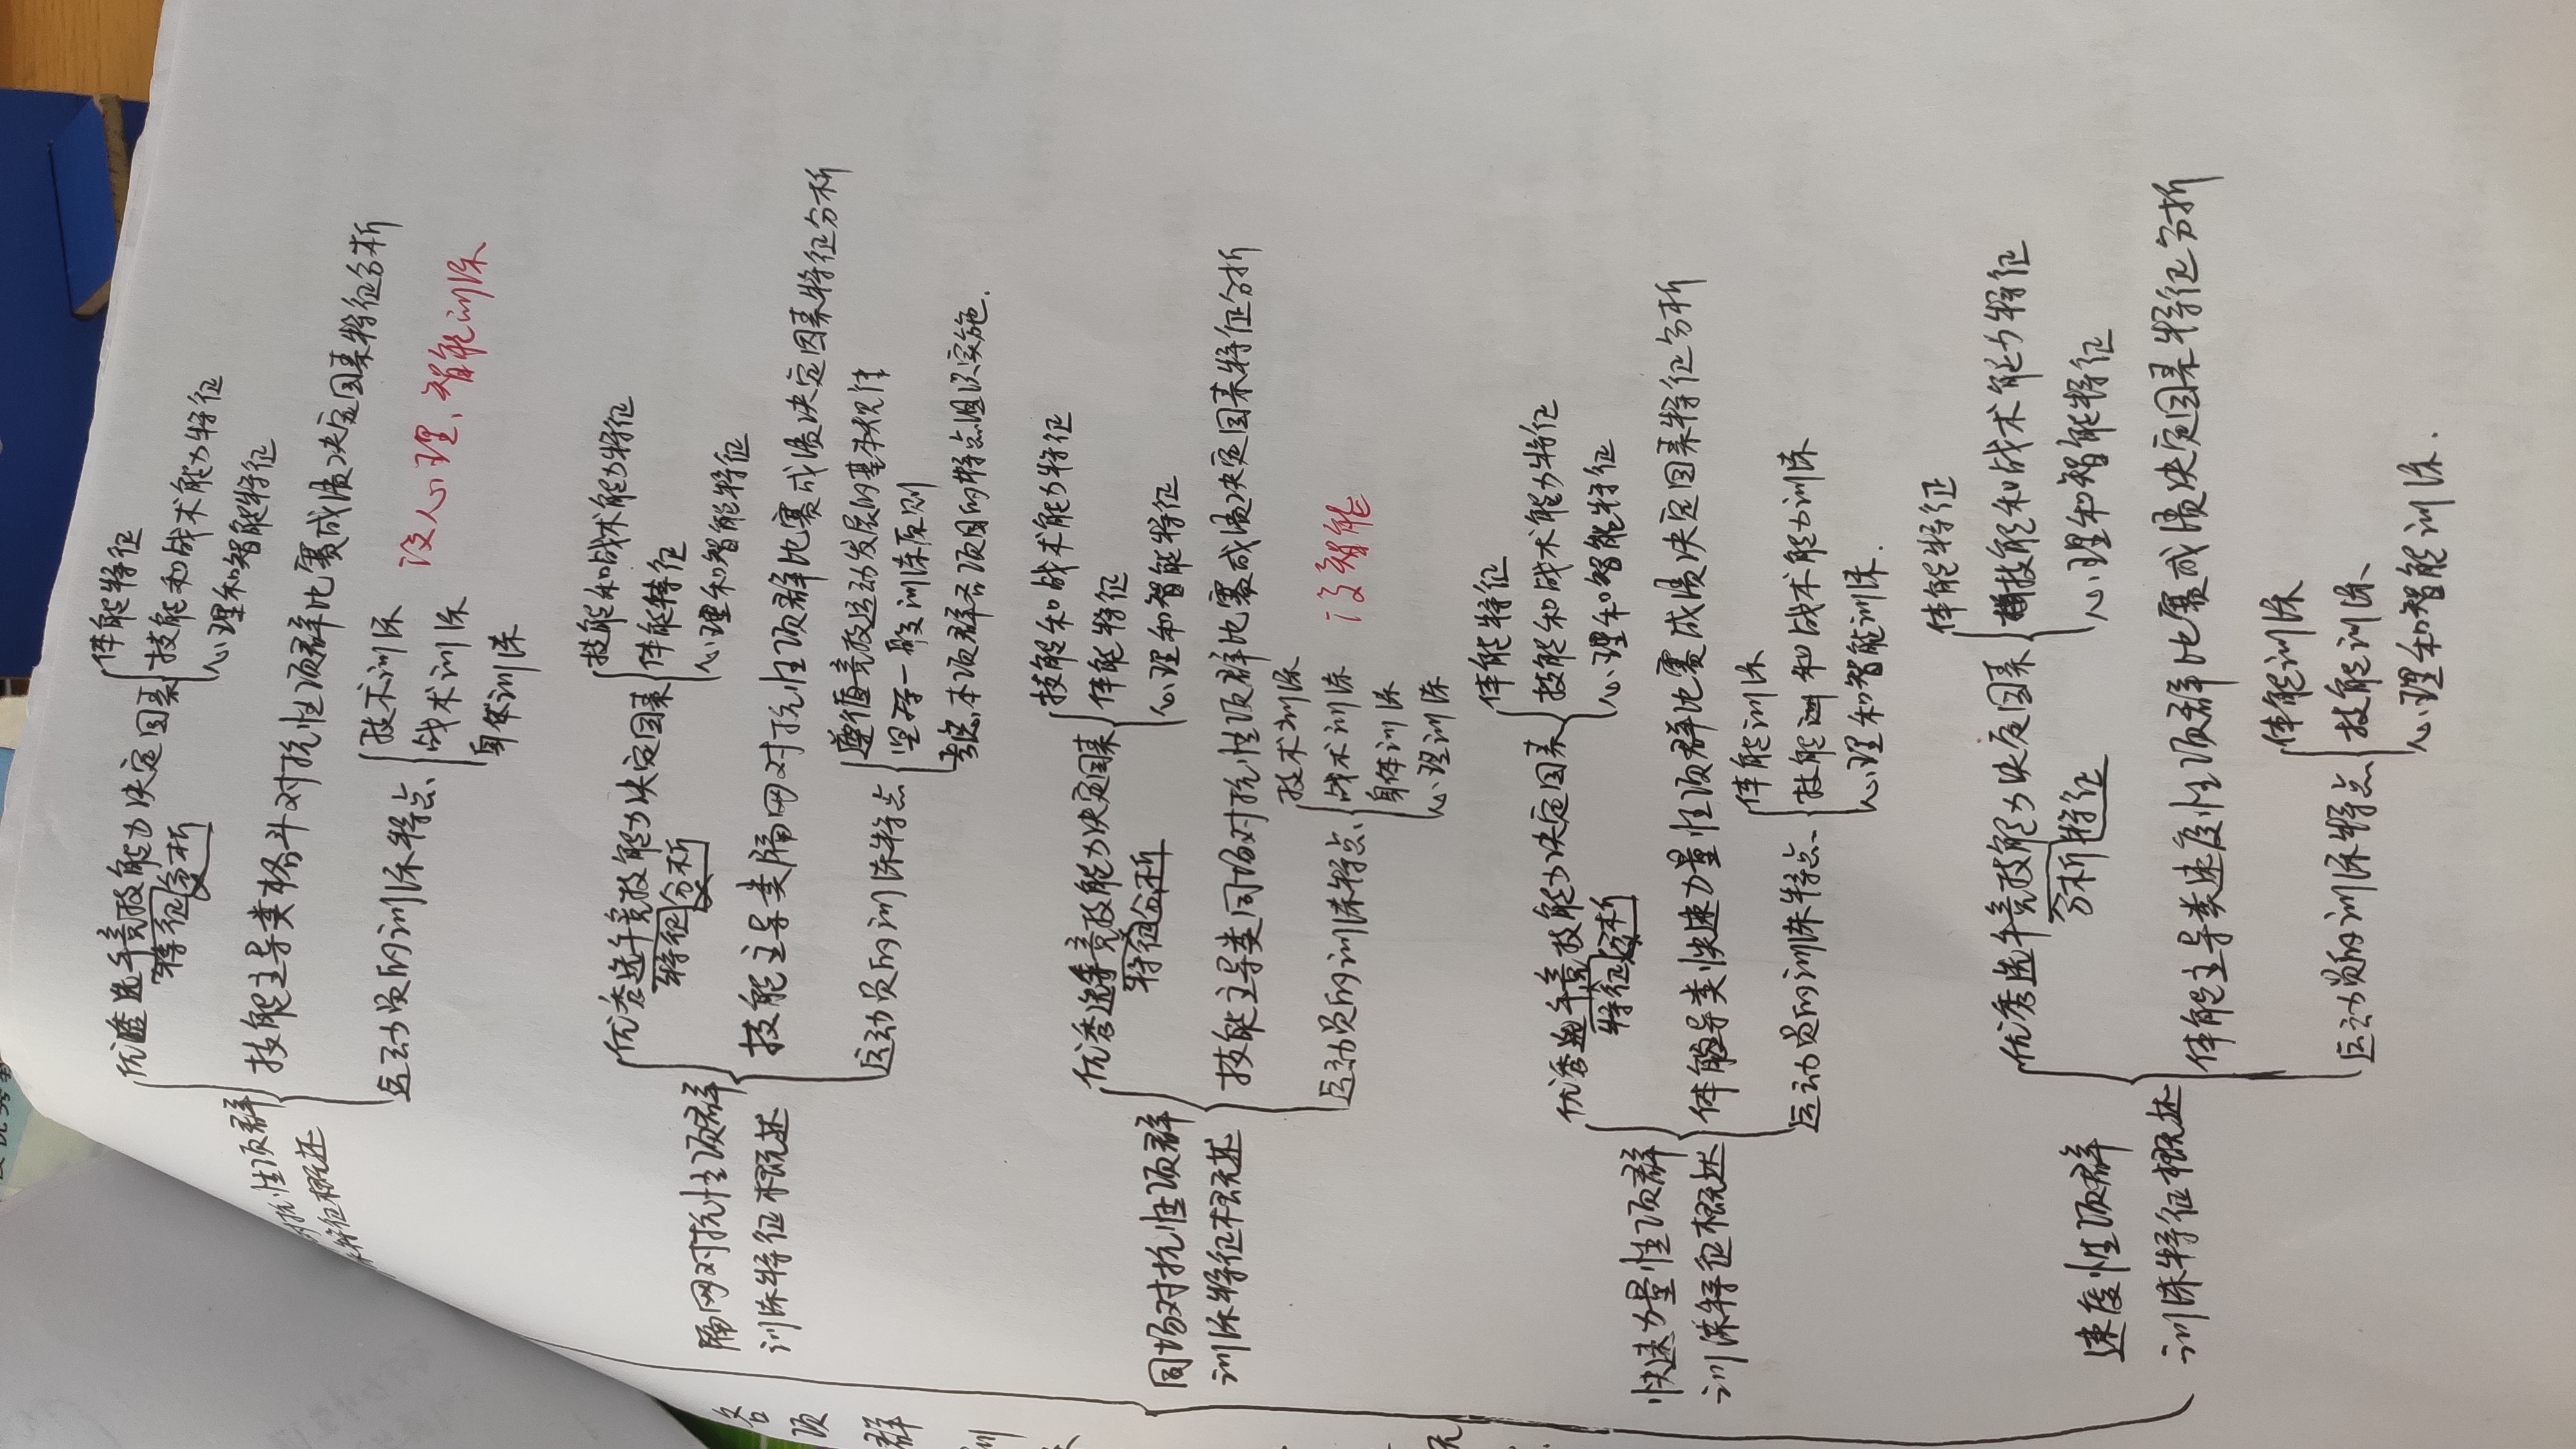 对抗性项群
特征概述
优秀选手竞技能力决定因素
特征分析
体能特征
技能和战术能力特征
心理和智能特征
技能主导类格斗对抗性项群比赛成绩决定因素特征分析
运动员的训练特点
技术训练
战术训练
身体训练
没人心理、智能训练
隔网对抗性项群
训练特征概述
优秀选手竞技能力决定因素
特征分析
技能和战术能力特征
体能特征
心理和智能特征
技能主导类隔网对抗性项群比赛成绩决定因素特征分析
运动员的训练特点
遵循竞技运动发展的基本规律
坚持一般训练原则
考虑本项群各项目的特点组织实施.
同场对抗性项群
训练特征概述
优秀选手竞技能力决定因素
特征分析
技能和战术能力特征
体能特征
心理和智能特征
技能主导类同场对抗性项群比赛成绩决定因素特征分析
运动员的训练特点
技术训练
战术训练
身体训练
心理训练
没智能
快速力量性项群
训练特征概述
优秀选手竞技能力决定因素
特征分析
体能特征
技能和战术能力特征
心理和智能特征
体能主导类快速力量性项群比赛成绩决定因素特征分析
运动员的训练特点
体能训练
技能和战术能力训练
心理和智能训练.
速度性项群
训练特征概述
优秀选手竞技能力决定因素
分析特征
体能特征
技能和战术能力特征
心理和智能特征
体能主导类速度性项群比赛成绩决定因素特征分析
运动员的训练特点
体能训练
技能训练
心理和智能训练.
各
项
群
训